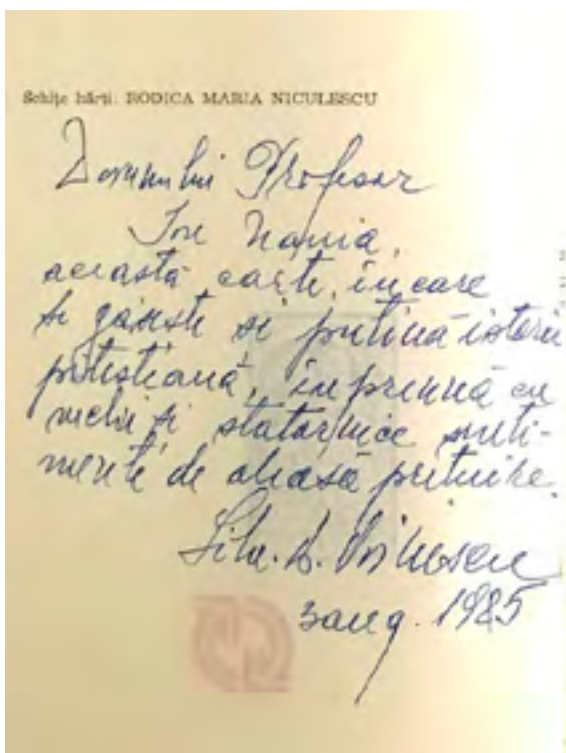 Schițe hărți: RODICA MARIA NICULESCU
Domnului Profesor
Ion Nania,
această carte, în care
se găsește și puțină istorie
piteșteană, împreună cu
vechi și statornice senti-
mente de aleasă prețuire.
3 aug. 1985